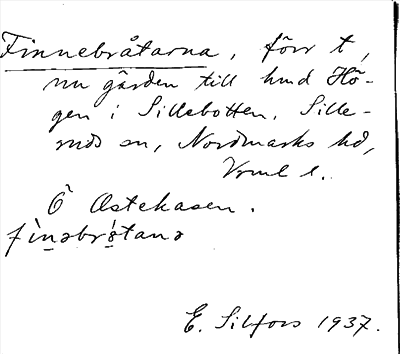 Finnebråtarna, förr t,
nu gården till hmd Hö-
gen i Sillebotten, Sille-
ruds sn, Nordmarks hd,
Vrml l.
Ö Ostekasen.
fìnəbrå̀tanə
E. Silfors 1937.